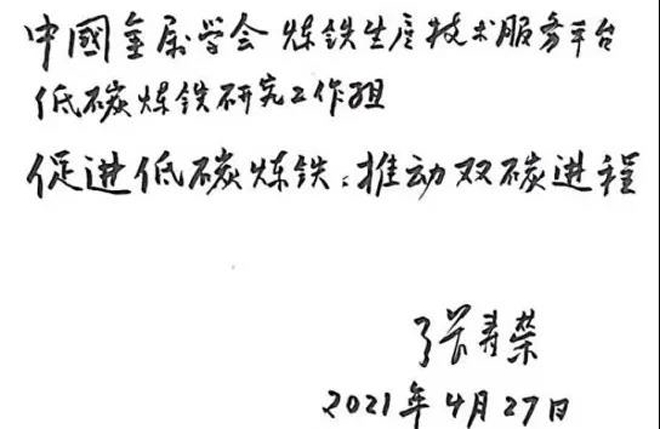 中國金属学会 炼铁生产技术服务平台
低碳炼铁研究工作组
促进低碳炼铁，推动双碳进程
张寿荣
2021年4月27日